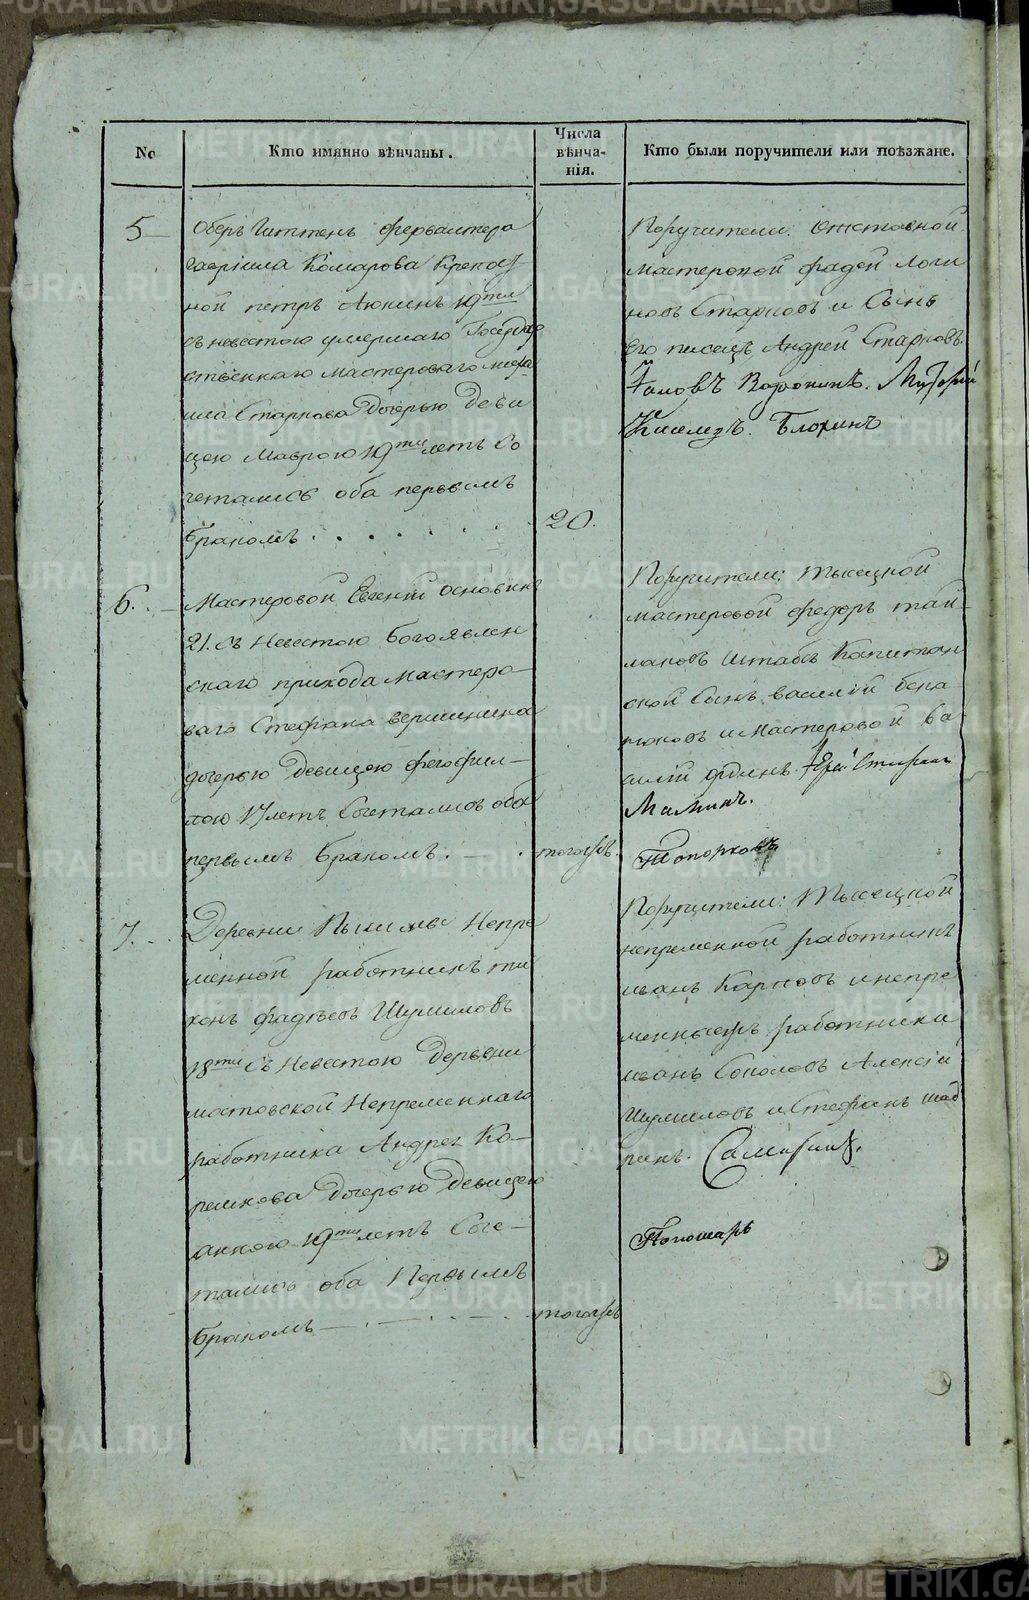 No
Кто имянно вѣнчаны.
Числа
вѣнча-
нія.
Кто были поручители или поѣзжане.
5
Оберъ Гиттенъ фервалтера
гавріила Комарова Крепост
ной петръ Аюкинъ 19ти
съ невестою умершаго Государ
ственнаго мастероваго миха
ила Старкова дочерью деви
цею Маврою 19ти летъ Со
четались оба первымъ
бракомъ
20.
Поручители: отставной
мастеровой фадей Логи
новъ Старковъ и Сынъ
Его писецъ Андрей Старковъ.
Воронинъ.
Киселевъ. Блохинъ
6.
Мастеровой Евгений Основинъ
21. съ Невестою богоявлен
скаго прихода мастеро-
ваго Стефана вершинина
дочерью девицею феофил-
лою 17 летъ Сочетались оба
первымъ бракомъ.
тогожъ
Поручители: тысецкой
мастеровой федоръ
штабъ Капитан
ской Сынъ василий бека
рюковъ и мастеровой ва
силий
Маминъ.
Топорковъ
7.
Деревни Пышмы Непре
менной работникъ ти
хонъ фадѣевъ Шумиловъ
18ти съ Невестою деревни
мостовской Непременнаго
работника Андрея Ко-
релкова дочерью девицею
анною 19ти летъ Соче-
тались оба Первымъ
бракомъ
тогожъ
Поручители: Тысецкой
непременной работникъ
иванъ Карповъ и непре
менные работники
иванъ Соколовъ Алексій
Шумиловъ и Стефанъ шаб
ринъ.
METRIKI.GASO-URAL.RU